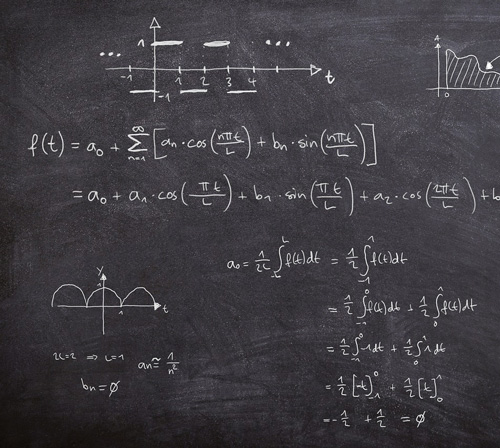 1
... ...
-1 1 2 3 4 t
-1
A
0
f(t) = a₀ + ∑ₙ₌₁^∞ [aₙ · cos(nπt/L) + bₙ · sin(nπt/L)]
= a₀ + a₁ · cos(πt/L) + b₁ · sin(πt/L) + a₂ · cos(2πt/L) + b
a₀ = 1/2L ∫₋L^L f(t)dt = 1/2 ∫₋₁^1 f(t)dt
= 1/2 ∫₋₁^0 f(t)dt + 1/2 ∫₀^1 f(t)dt
= 1/2 ∫₋₁^0 -1dt + 1/2 ∫₀^1 1dt
= 1/2 [-t]₋₁^0 + 1/2 [t]₀^1
= -1/2 + 1/2 = ∅
y
1
1 t
2L=2 ⇒ L=1 aₙ ≅ 1/n²
bₙ = ∅